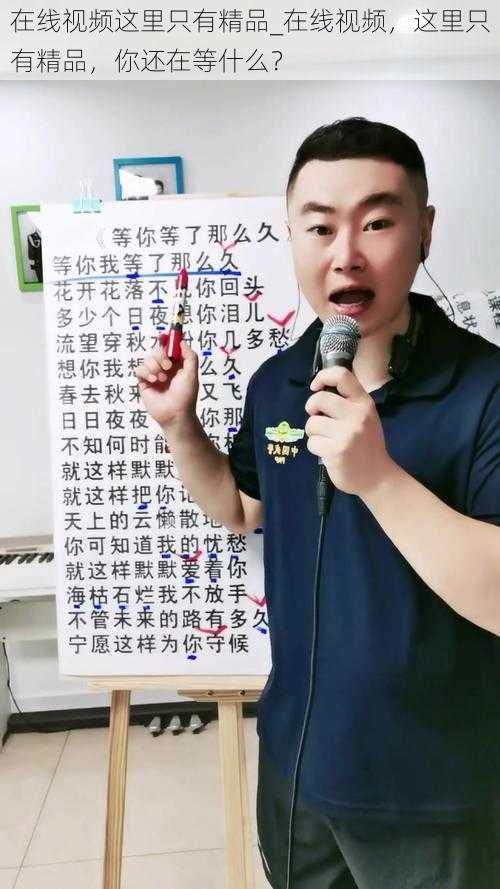 在线视频这里只有精品_在线视频，这里只
有精品，你还在等什么？
《等你等了那么久
等你我等了那么久
花开花落不 你回头
多少个日夜想你泪儿
流望穿秋水 你几多愁
想你我想 么久
春去秋来 又飞
日日夜夜 你那
不知何时能
就这样默默
就这样把你记
天上的云懒散地
你可知道我的忧愁
就这样默默爱着你
海枯石烂我不放手
不管未来的路有多久
宁愿这样为你守候